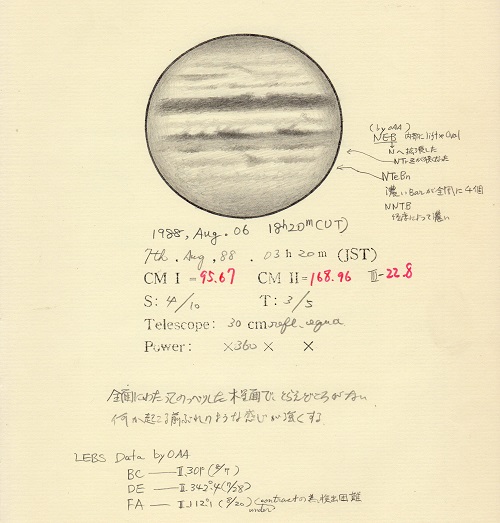 (by OAA)
NEB 内部に rift や Oval
Nへ拡張した
NTrZが狭くなった
NTeBn
濃い Barが全周に4個
NNTB
経度によって濃い
1988, Aug. 06 18h20m(UT)
7th. Aug, 88 . 03h20m (JST)
CM I = 95.67 CM II = 168.96 III-22.8
S: 4/10 T: 3/5
Telescope: 30 cm refl.
Power: ×360 × ×
全面にわたってのっぺりした木星面で、とらえどころがない
何か起こる前ぶれのような感じが強くする
LEBS Data by OAA
BC — II.309 (8/7)
DE — II.342.°4 (7/28)
FA — II.112.°1 (8/20) (contrastの為、検出困難
under)